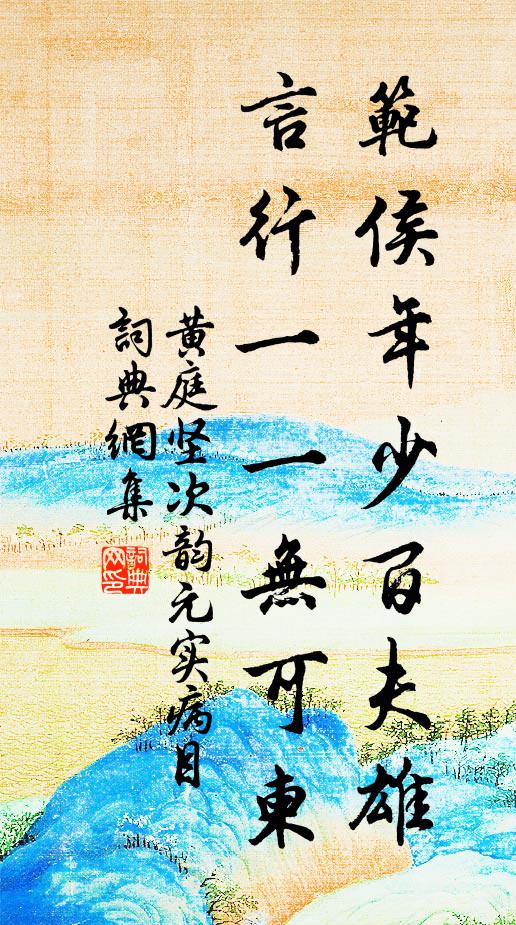 範侯年少百夫雄
言行一一無可東
黄庭坚次韵元实病目
詞典網集
詞典
网印